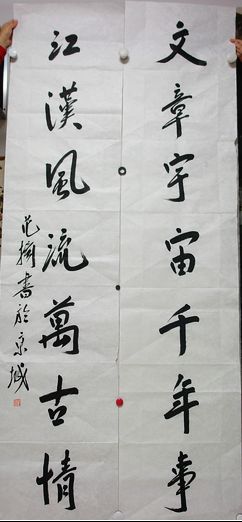 文章宇宙千年事
江漢風流萬古情
書於京城